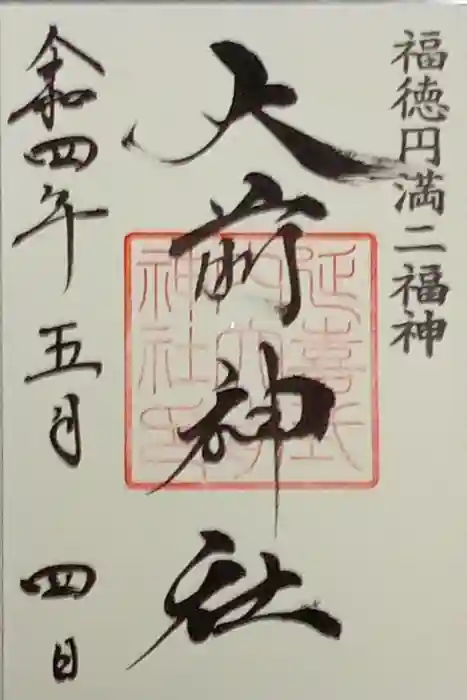 福徳円満二福神
大前神社
延喜式
内大前
神社印
令和四年 五月 四日